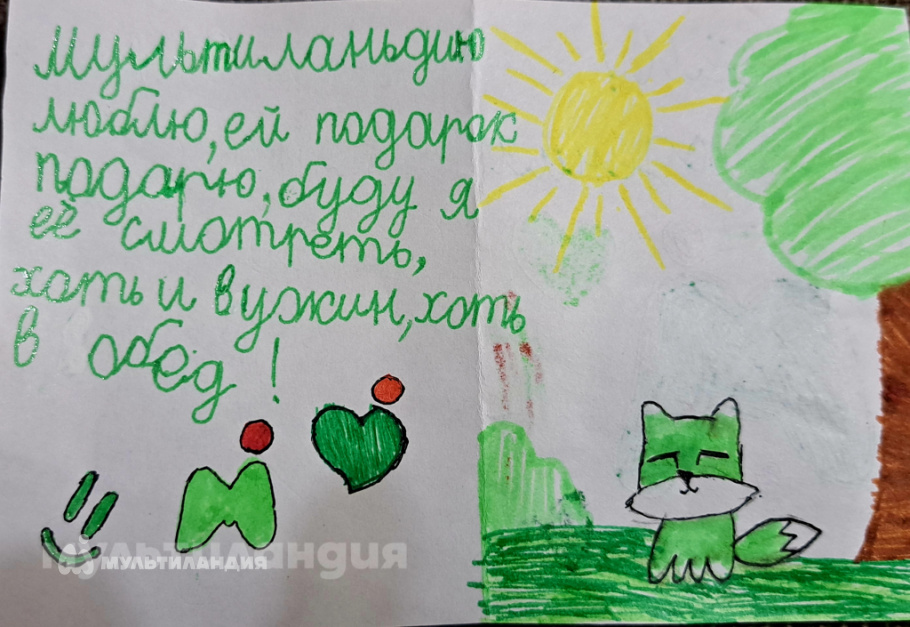 Мультиланьдию
люблю, ей подарок
подарю, буду я
её смотреть,
хоть и в ужин, хоть
в обед!
М
мультиландия
МУЛЬТИЛАНДИЯ